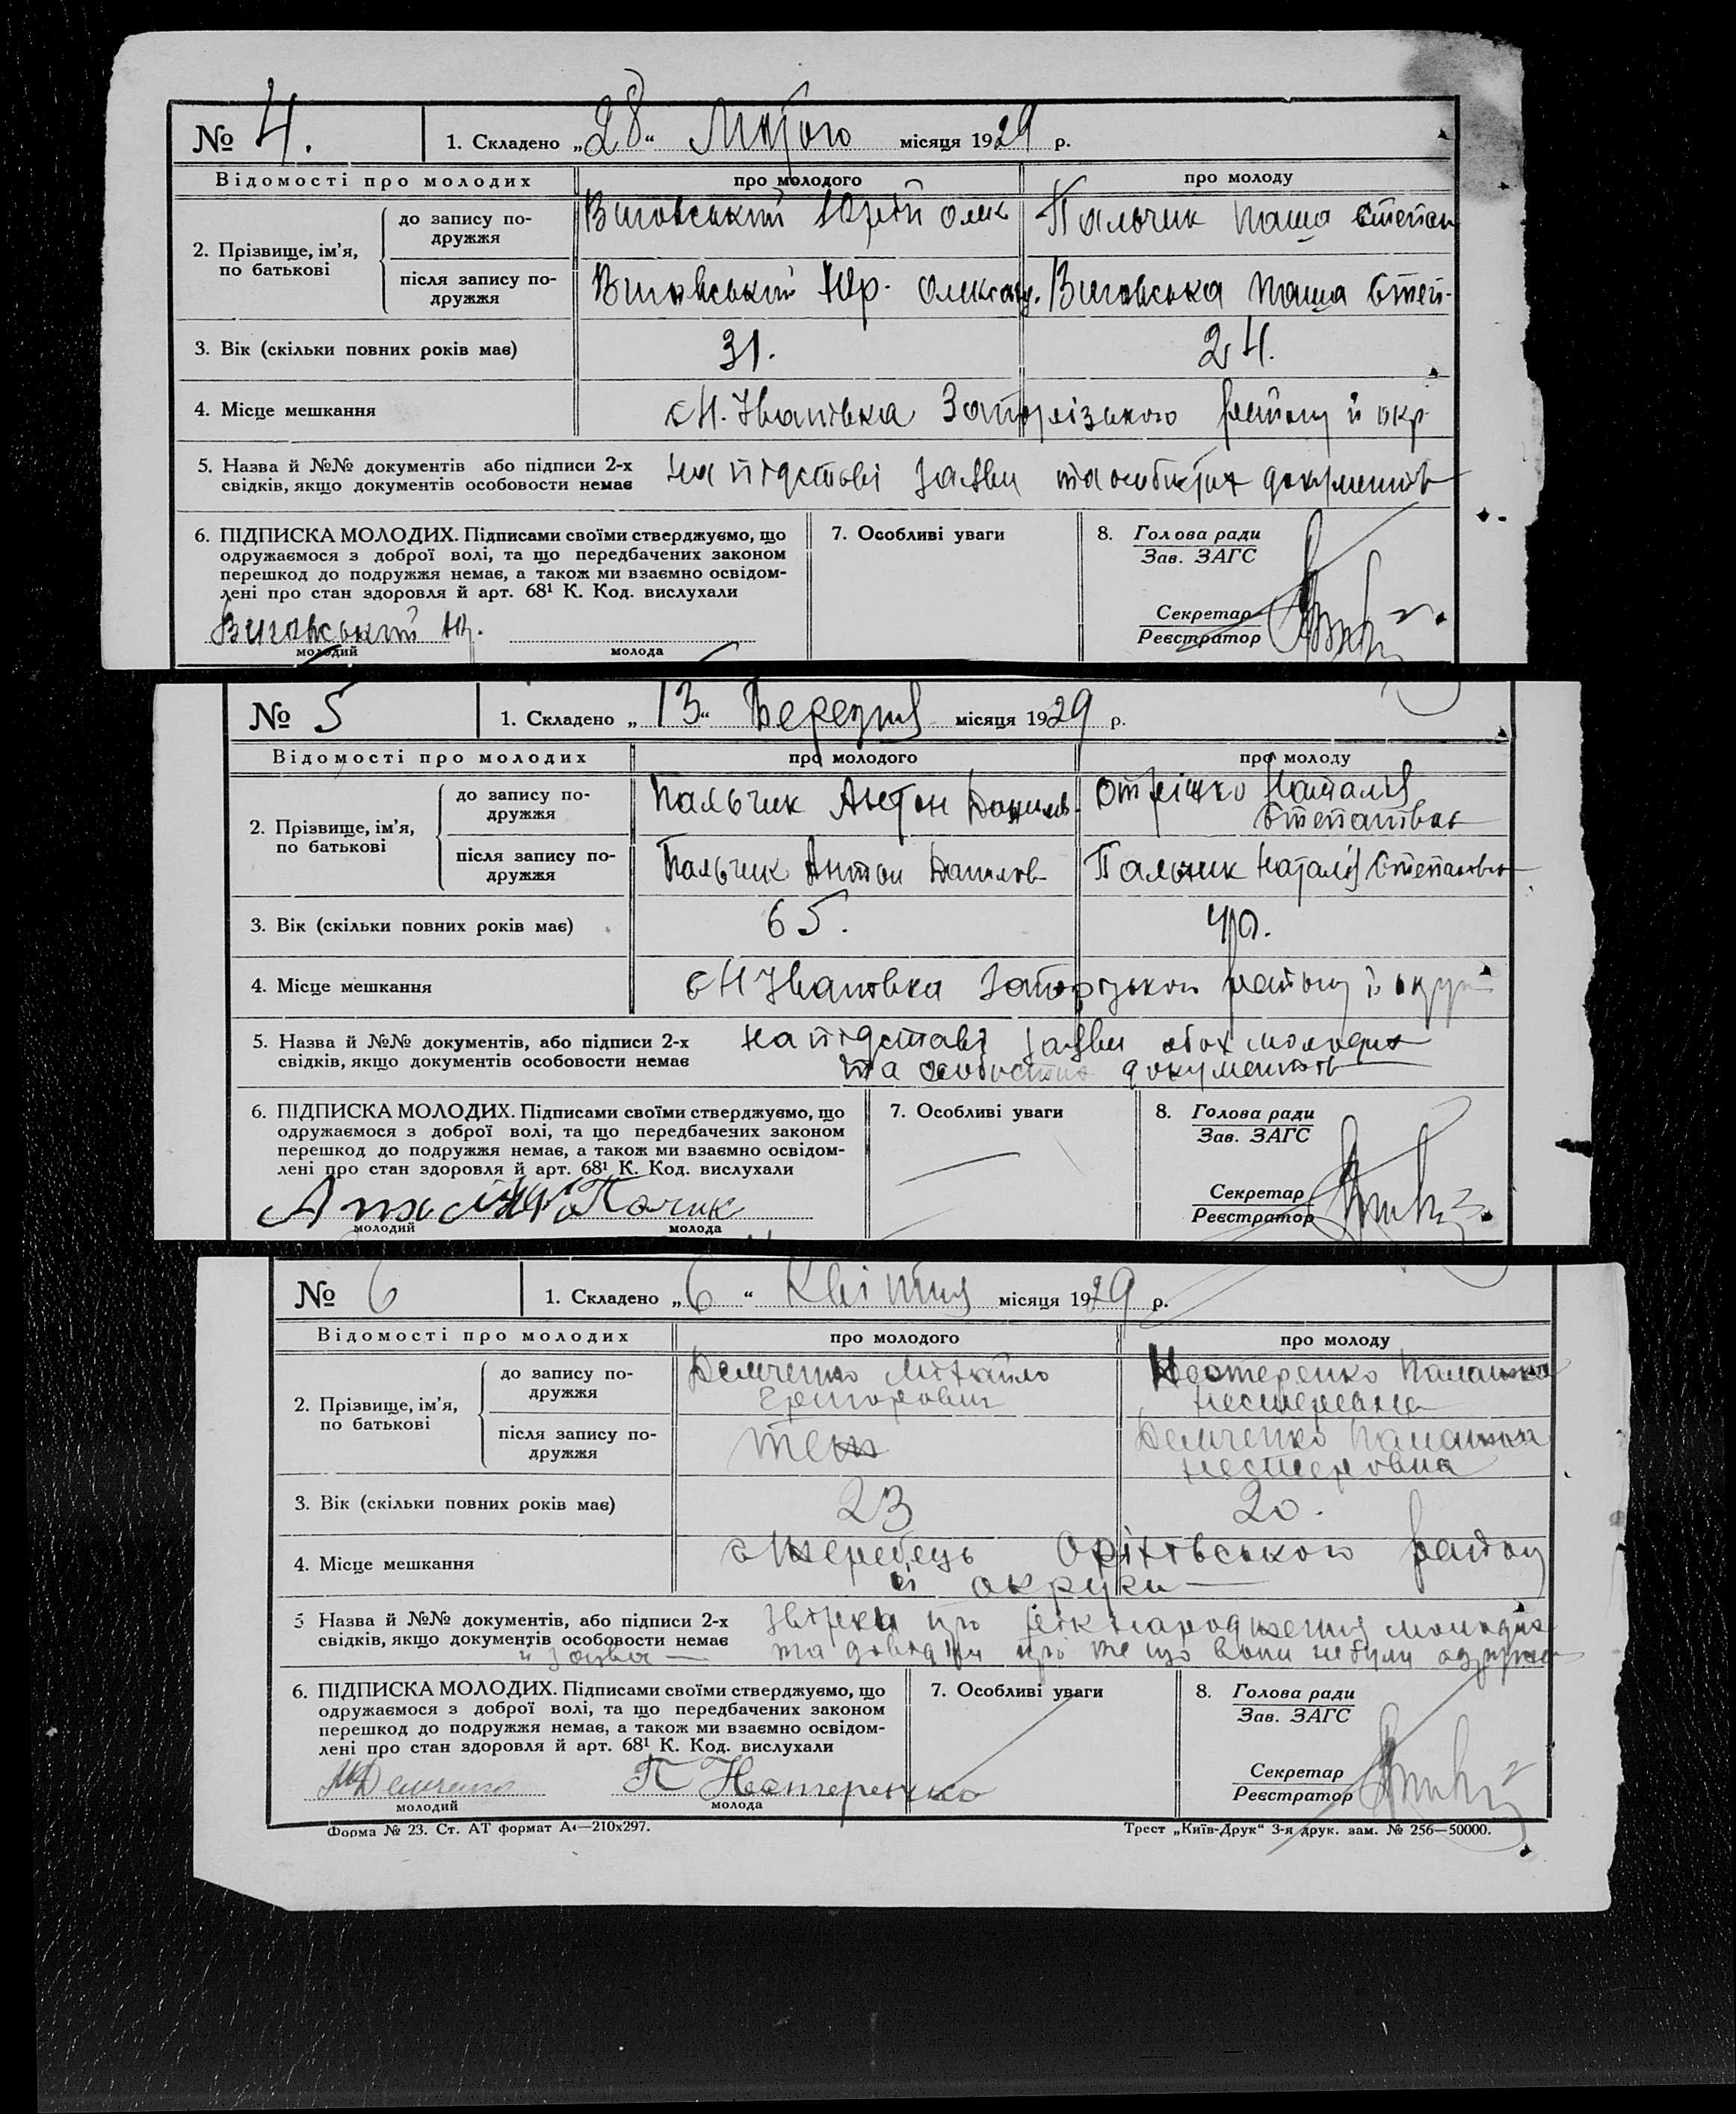 № 4. 1. Складено „28“ Лютого місяця 1929 р.
Відомості про молодих про молодого про молоду
2. Прізвище, ім’я, по батькові
до запису по-
дружжя
Виговський Юрій Олек Пальчик Паша Степан
після запису по-
дружжя
Виговський Юр. Олександ. Виговська Паша Степ.
3. Вік (скільки повних років має) 31. 24.
4. Місце мешкання с Н. Іванівка Запорізького району й окр
5. Назва й №№ документів або підписи 2-х
свідків, якщо документів особовости немає
на підставі заяви та особистих документів
6. ПІДПИСКА МОЛОДИХ. Підписами своїми стверджуємо, що
одружаємося з доброї волі, та що передбачених законом
перешкод до подружжя немає, а також ми взаємно освідом-
лені про стан здоровля й арт. 68¹ К. Код. вислухали
Виговський Ю.
молодий молода
7. Особливі уваги
8. Голова ради
Зав. ЗАГС
Секретар
Реєстратор
№ 5 1. Складено „13“ Березня місяця 1929 р.
Відомості про молодих про молодого про молоду
2. Прізвище, ім’я,
по батькові
до запису по-
дружжя
Пальчик Антон Данилов. Отрішко Наталія
Степанівна
після запису по-
дружжя
Пальчик Антон Данилов Пальчик Наталія Степановна
3. Вік (скільки повних років має) 65. 40.
4. Місце мешкання с Н Івановка Запорізького району й округи
5. Назва й №№ документів, або підписи 2-х
свідків, якщо документів особовости немає
на підставі заяви обох молодих
та особистих документів
6. ПІДПИСКА МОЛОДИХ. Підписами своїми стверджуємо, що
одружаємося з доброї волі, та що передбачених законом
перешкод до подружжя немає, а також ми взаємно освідом-
лені про стан здоровля й арт. 68¹ К. Код. вислухали
молодий молода
7. Особливі уваги
8. Голова ради
Зав. ЗАГС
Секретар
Реєстратор
№ 6 1. Складено „6“ Квітня місяця 1929 р.
Відомості про молодих про молодого про молоду
2. Прізвище, ім’я,
по батькові
до запису по-
дружжя
Демченко Михайло Нестеренко Палашка
Григорович Нестеровна
після запису по-
дружжя
теж Демченко Палашка
Нестеровна
3. Вік (скільки повних років має) 23 20.
4. Місце мешкання с Жеребець Оріхівського району
й округи
5 Назва й №№ документів, або підписи 2-х
свідків, якщо документів особовости немає
про рік народження молодих
та довідки про те що вони не були
й заяви
6. ПІДПИСКА МОЛОДИХ. Підписами своїми стверджуємо, що
одружаємося з доброї волі, та що передбачених законом
перешкод до подружжя немає, а також ми взаємно освідом-
лені про стан здоровля й арт. 68¹ К. Код. вислухали
М Демченко П Нестеренко
молодий молода
7. Особливі уваги
8. Голова ради
Зав. ЗАГС
Секретар
Реєстратор
Форма № 23. Ст. АТ формат А4—210х297. Трест „Київ-Друк“ 3-я друк. зам. № 256—50000.